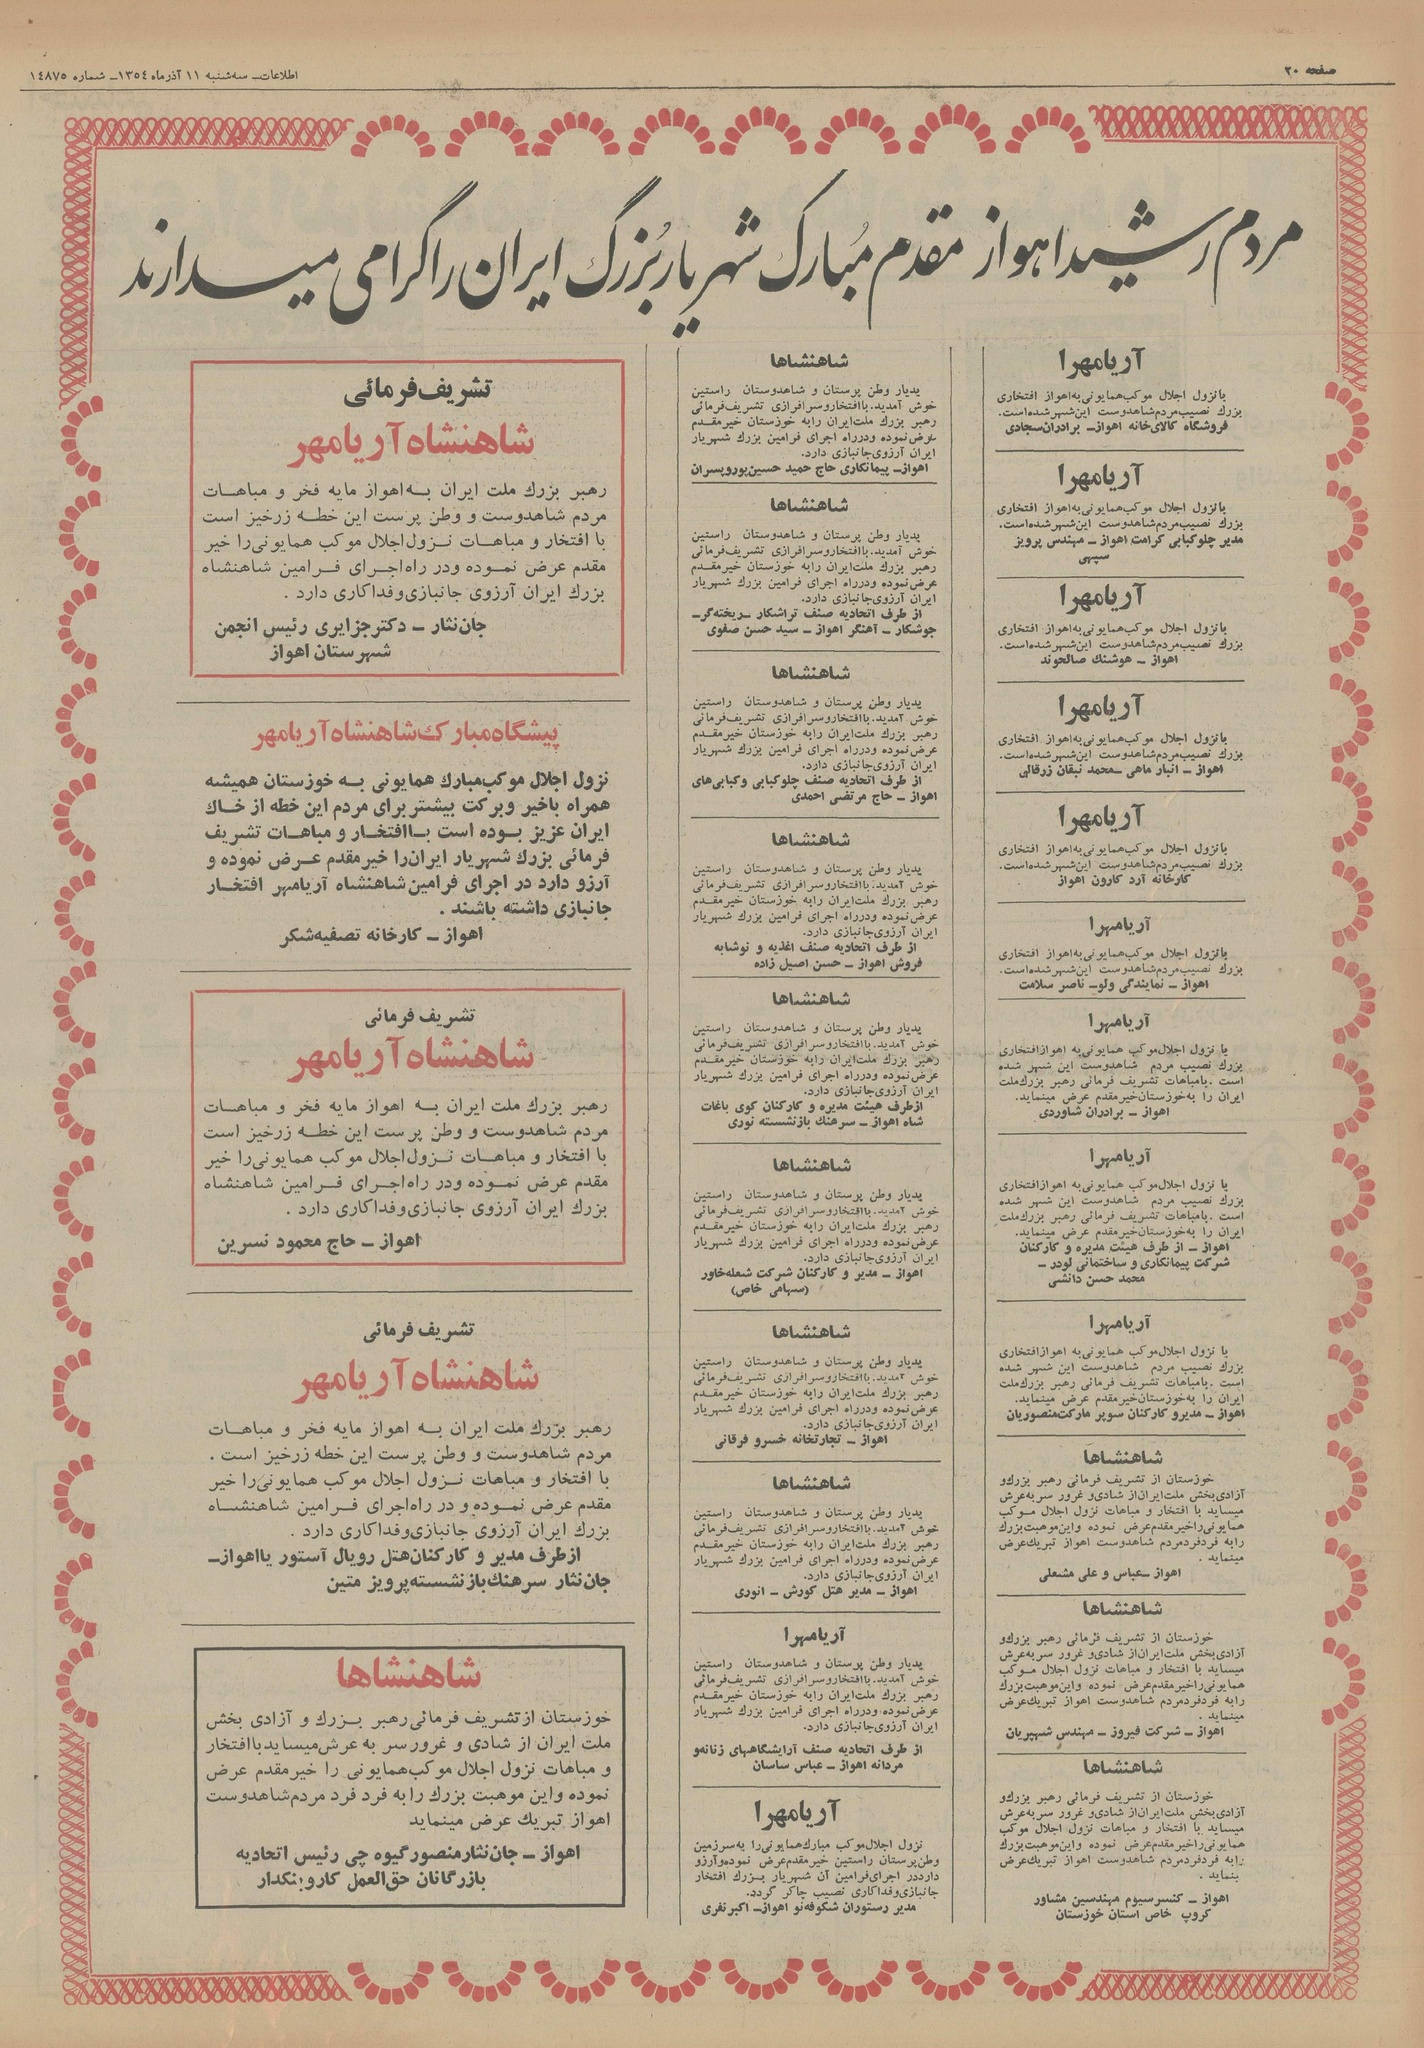 صفحه ۲۰
اطلاعات ـ سه‌شنبه ۱۱ آذر ماه ۱۳۵۴ ـ شماره ۱۴۸۷۵
مردم رشید اهواز مقدم مُبارک شهریار بُزرگ ایران را گرامی میدارند
آریامهرا
با نزول اجلال موکب همایونی به اهواز افتخاری
بزرك نصیب مردم شاهدوست این شهر شده است.
فروشگاه کالای خانه اهواز ـ برادران سجادی
آریامهرا
با نزول اجلال موکب همایونی به اهواز افتخاری
بزرك نصیب مردم شاهدوست این شهر شده است.
مدیر چلوکبابی کرامت اهواز ـ مهندس پرویز
سپهی
آریامهرا
با نزول اجلال موکب همایونی به اهواز افتخاری
بزرك نصیب مردم شاهدوست این شهر شده است.
اهواز ـ هوشنك صالحوند
آریامهرا
با نزول اجلال موکب همایونی به اهواز افتخاری
بزرك نصیب مردم شاهدوست این شهر شده است.
اهواز ـ انبار ماهی ـ محمد نبقان زرقالی
آریامهرا
با نزول اجلال موکب همایونی به اهواز افتخاری
بزرك نصیب مردم شاهدوست این شهر شده است.
کارخانه آرد کارون اهواز
آریامهرا
با نزول اجلال موکب همایونی به اهواز افتخاری
بزرك نصیب مردم شاهدوست این شهر شده است.
اهواز ـ نمایندگی ولو ـ ناصر سلامت
آریامهرا
با نزول اجلال موکب همایونی به اهواز افتخاری
بزرك نصیب مردم شاهدوست این شهر شده
است. بامباهات تشریف فرمائی رهبر بزرك ملت
ایران را به خوزستان خیر مقدم عرض مینماید.
اهواز ـ برادران شاوردی
آریامهرا
با نزول اجلال موکب همایونی به اهواز افتخاری
بزرك نصیب مردم شاهدوست این شهر شده
است. بامباهات تشریف فرمائی رهبر بزرك ملت
ایران را به خوزستان خیر مقدم عرض مینماید.
اهواز ـ از طرف هیئت مدیره و کارکنان
شرکت پیمانکاری و ساختمانی لودر ـ
محمد حسن دانشی
آریامهرا
با نزول اجلال موکب همایونی به اهواز افتخاری
بزرك نصیب مردم شاهدوست این شهر شده
است. بامباهات تشریف فرمائی رهبر بزرك ملت
ایران را به خوزستان خیر مقدم عرض مینماید.
اهواز ـ مدیر و کارکنان سوپر مارکت منصوریان
شاهنشاها
خوزستان از تشریف فرمائی رهبر بزرك و
آزادی بخش ملت ایران از شادی و غرور سر به عرش
میساید با افتخار و مباهات نزول اجلال موکب
همایونی را خیر مقدم عرض نموده و این موهبت بزرك
را به فرد فرد مردم شاهدوست اهواز تبریك عرض
مینماید .
اهواز ـ عباس و علی مشعلی
شاهنشاها
خوزستان از تشریف فرمائی رهبر بزرك و
آزادی بخش ملت ایران از شادی و غرور سر به عرش
میساید با افتخار و مباهات نزول اجلال موکب
همایونی را خیر مقدم عرض نموده و این موهبت بزرك
را به فرد فرد مردم شاهدوست اهواز تبریك عرض
مینماید .
اهواز ـ شرکت فیروز ـ مهندس شهپریان
شاهنشاها
خوزستان از تشریف فرمائی رهبر بزرك و
آزادی بخش ملت ایران از شادی و غرور سر به عرش
میساید با افتخار و مباهات نزول اجلال موکب
همایونی را خیر مقدم عرض نموده و این موهبت بزرك
را به فرد فرد مردم شاهدوست اهواز تبریك عرض
ینماید .
اهواز ـ کنسرسیوم مهندسین مشاور
گروپ خاص استان خوزستان
شاهنشاها
بدیار وطن پرستان و شاهدوستان راستین
خوش آمدید. با افتخار و سر افرازی تشریف فرمائی
رهبر بزرك ملت ایران را به خوزستان خیر مقدم
عرض نموده و در راه اجرای فرامین بزرك شهریار
ایران آرزوی جانبازی دارد.
اهواز ـ پیمانکاری حاج حمید حسین پور و پسران
شاهنشاها
بدیار وطن پرستان و شاهدوستان راستین
خوش آمدید. با افتخار و سر افرازی تشریف فرمائی
رهبر بزرك ملت ایران را به خوزستان خیر مقدم
عرض نموده و در راه اجرای فرامین بزرك شهریار
ایران آرزوی جانبازی دارد.
از طرف اتحادیه صنف تراشکار ـ ریخته گر ـ
جوشکار ـ آهنگر اهواز ـ سید حسن صفوی
شاهنشاها
بدیار وطن پرستان و شاهدوستان راستین
خوش آمدید. با افتخار و سر افرازی تشریف فرمائی
رهبر بزرك ملت ایران را به خوزستان خیر مقدم
عرض نموده و در راه اجرای فرامین بزرك شهریار
ایران آرزوی جانبازی دارد.
از طرف اتحادیه صنف چلوکبابی و کبابی های
اهواز ـ حاج مرتضی احمدی
شاهنشاها
بدیار وطن پرستان و شاهدوستان راستین
خوش آمدید. با افتخار و سر افرازی تشریف فرمائی
رهبر بزرك ملت ایران را به خوزستان خیر مقدم
عرض نموده و در راه اجرای فرامین بزرك شهریار
ایران آرزوی جانبازی دارد.
از طرف اتحادیه صنف اغذیه و نوشابه
فروش اهواز ـ حسن اصیل زاده
شاهنشاها
بدیار وطن پرستان و شاهدوستان راستین
خوش آمدید. با افتخار و سر افرازی تشریف فرمائی
رهبر بزرك ملت ایران را به خوزستان خیر مقدم
عرض نموده و در راه اجرای فرامین بزرك شهریار
ایران آرزوی جانبازی دارد.
از طرف هیئت مدیره و کارکنان کوی باغات
شاه اهواز ـ سرهنك بازنشسته نوری
شاهنشاها
بدیار وطن پرستان و شاهدوستان راستین
خوش آمدید. با افتخار و سر افرازی تشریف فرمائی
رهبر بزرك ملت ایران را به خوزستان خیر مقدم
عرض نموده و در راه اجرای فرامین بزرك شهریار
ایران آرزوی جانبازی دارد.
اهواز ـ مدیر و کارکنان شرکت شعله خاور
(سهامی خاص)
شاهنشاها
بدیار وطن پرستان و شاهدوستان راستین
خوش آمدید. با افتخار و سر افرازی تشریف فرمائی
رهبر بزرك ملت ایران را به خوزستان خیر مقدم
عرض نموده و در راه اجرای فرامین بزرك شهریار
ایران آرزوی جانبازی دارد.
اهواز ـ تجارتخانه خسرو فرقانی
شاهنشاها
بدیار وطن پرستان و شاهدوستان راستین
خوش آمدید. با افتخار و سر افرازی تشریف فرمائی
رهبر بزرك ملت ایران را به خوزستان خیر مقدم
عرض نموده و در راه اجرای فرامین بزرك شهریار
ایران آرزوی جانبازی دارد.
اهواز ـ مدیر هتل کورش ـ انوری
آریامهرا
بدیار وطن پرستان و شاهدوستان راستین
خوش آمدید. با افتخار و سر افرازی تشریف فرمائی
رهبر بزرك ملت ایران را به خوزستان خیر مقدم
عرض نموده و در راه اجرای فرامین بزرك شهریار
ایران آرزوی جانبازی دارد.
از طرف اتحادیه صنف آرایشگاههای زنانه و
مردانه اهواز ـ عباس ساسان
آریامهرا
نزول اجلال موکب مبارك همایونی را به سرزمین
وطن پرستان راستین خیر مقدم عرض نموده و آرزو
دارد در اجرای فرامین آن شهریار بزرك افتخار
جانبازی و فداکاری نصیب چاکر گردد.
مدیر رستوران شکوفه نو اهواز ـ اکبر نفری
تشریف فرمائی
شاهنشاه آریامهر
رهبر بزرك ملت ایران به اهواز مایه فخر و مباهات
مردم شاهدوست و وطن پرست این خطه زرخیز است
با افتخار و مباهات نزول اجلال موکب همایونی را خیر
مقدم عرض نموده و در راه اجرای فرامین شاهنشاه
بزرك ایران آرزوی جانبازی و فداکاری دارد .
جان نثار ـ دکتر جزایری رئیس انجمن
شهرستان اهواز
پیشگاه مبارك شاهنشاه آریامهر
نزول اجلال موکب مبارك همایونی به خوزستان همیشه
همراه با خیر و برکت بیشتر برای مردم این خطه از خاك
ایران عزیز بوده است با افتخار و مباهات تشریف
فرمائی بزرك شهریار ایران را خیر مقدم عرض نموده و
آرزو دارد در اجرای فرامین شاهنشاه آریامهر افتخار
جانبازی داشته باشند .
اهواز ـ کارخانه تصفیه شکر
تشریف فرمائی
شاهنشاه آریامهر
رهبر بزرك ملت ایران به اهواز مایه فخر و مباهات
مردم شاهدوست و وطن پرست این خطه زرخیز است
با افتخار و مباهات نزول اجلال موکب همایونی را خیر
مقدم عرض نموده و در راه اجرای فرامین شاهنشاه
بزرك ایران آرزوی جانبازی و فداکاری دارد .
اهواز ـ حاج محمود نسرین
تشریف فرمائی
شاهنشاه آریامهر
رهبر بزرك ملت ایران به اهواز مایه فخر و مباهات
مردم شاهدوست و وطن پرست این خطه زرخیز است .
با افتخار و مباهات نزول اجلال موکب همایونی را خیر
مقدم عرض نموده و در راه اجرای فرامین شاهنشاه
بزرك ایران آرزوی جانبازی و فداکاری دارد .
از طرف مدیر و کارکنان هتل رویال آستور یا اهواز ـ
جان نثار سرهنك بازنشسته پرویز متین
شاهنشاها
خوزستان از تشریف فرمائی رهبر بزرك و آزادی بخش
ملت ایران از شادی و غرور سر به عرش میساید با افتخار
و مباهات نزول اجلال موکب همایونی را خیر مقدم عرض
نموده و این موهبت بزرك را به فرد فرد مردم شاهدوست
اهواز تبریك عرض مینماید
اهواز ـ جان نثار منصور گیوه چی رئیس اتحادیه
بازرگانان حق العمل کار و بنکدار